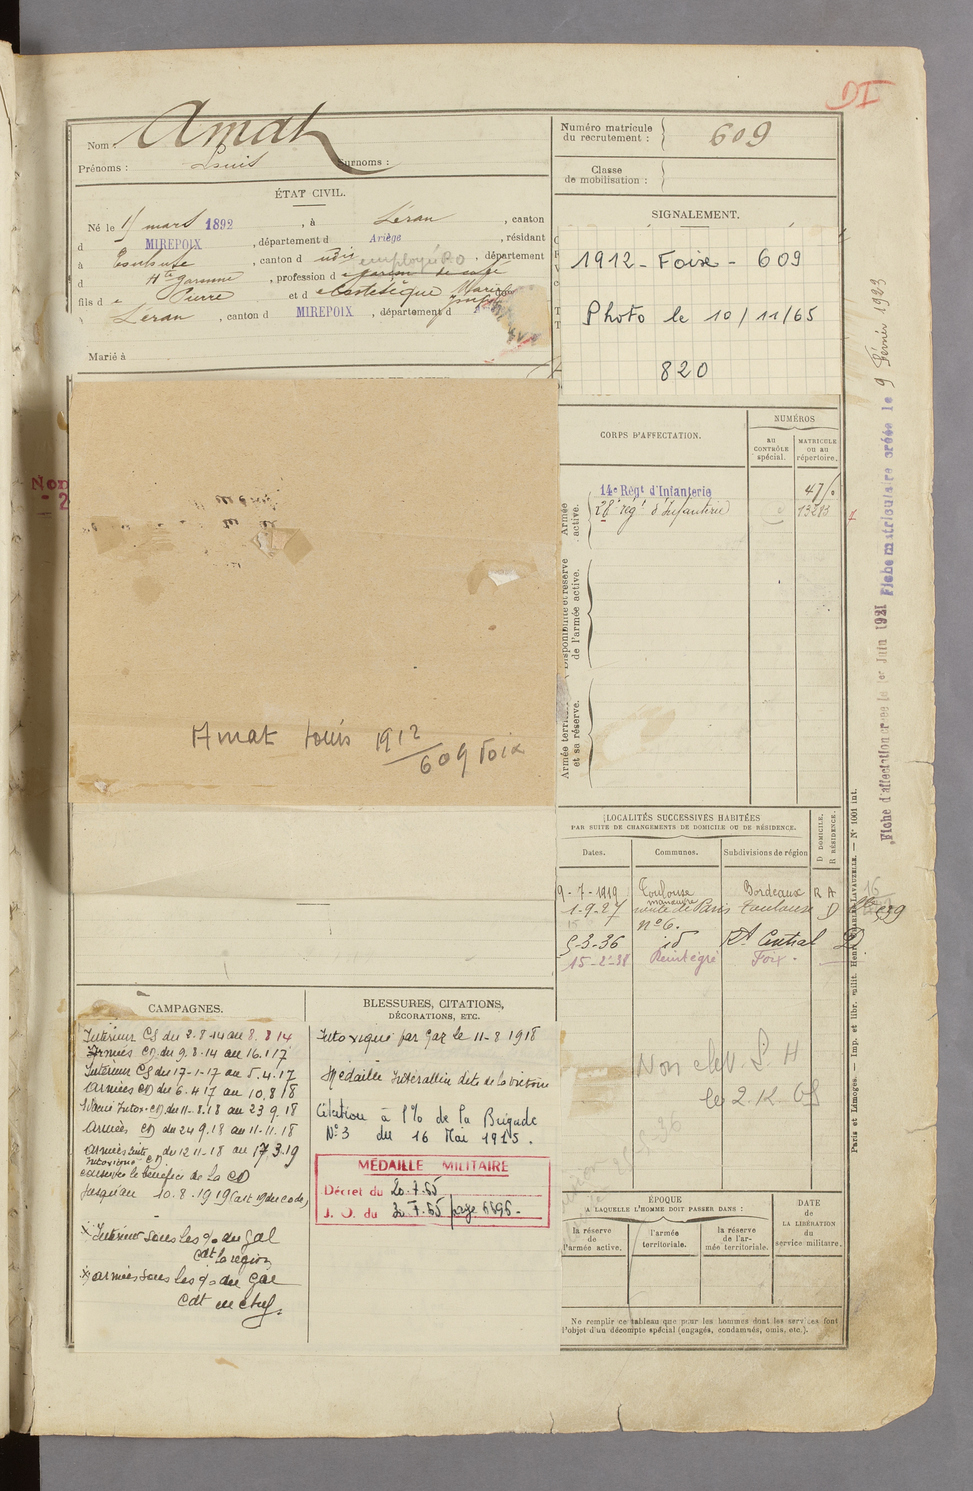 DI
Nom : Amat
Prénoms : Louis Surnoms :
Numéro matricule du recrutement : 609
Classe de mobilisation :
ÉTAT CIVIL.
Né le 1 mars 1892, à Léran, canton
d MIREPOIX, département d Ariège, résidant
à Toulouse, canton d udis, département
d Hte Garonne, profession d employé P.O garçon de café
fils de Pierre et de Castetèque Marie
Léran, canton d MIREPOIX, département d
Marié à
SIGNALEMENT.
1912 - Foix - 609
Photo le 10/11/65
820
Amat Louis 1912
609 Foix
CORPS D'AFFECTATION.
NUMÉROS
AU CONTRÔLE spécial.
MATRICULE ou au répertoire.
Armée active.
14e Régt d'Infanterie
28e rég't d'Infanterie 13213
Disponibilité et réserve de l'armée active.
Armée territ
et sa réserve.
LOCALITÉS SUCCESSIVES HABITÉES
PAR SUITE DE CHANGEMENTS DE DOMICILE OU DE RÉSIDENCE.
Dates. Communes. Subdivisions de région
D DOMICILE.
R RÉSIDENCE.
9-7-1919 Toulouse Bordeaux R A
1-9-27 route de Paris Toulouse D
n° 6.
5-3-36 id Rt Central D
15-2-38 Réintégré Foix.
Non
- 2
CAMPAGNES.
Intérieur CS du 2.8.14 au 8.8 14
Armées CD du 9.8.14 au 16.1 17
Intérieur CS du 17-1-17 au 5.4.17
Armées CD du 6.4 17 au 10.8 18
CD du 11.8.18 au 23 9.18
Armées CD du 24 9.18 au 11-11.18
Armées CD du 12 11-18 au 17 3.19
conserve le bénéfice de la CD
jusqu'au 10.8.1919 (art 19 du code)
Intérieur sous les % du Gal
Cdt la région
armées sous les % du Gal
Cdt en chef.
BLESSURES, CITATIONS,
DÉCORATIONS, ETC.
Intoxiqué par Gaz le 11-8 1918
Médaille Interalliée dite de la Victoire
Citation à l'% de la Brigade
N° 3 du 16 Mai 1915.
MÉDAILLE MILITAIRE
Décret du 20.7.65
J. O. du 30.7.65 page 6595.
Non chev. L H
le 2.12.68
ÉPOQUE
A LAQUELLE L'HOMME DOIT PASSER DANS :
la réserve de l'armée active.
l'armée territoriale.
la réserve de l'armée territoriale.
DATE de LA LIBÉRATION du service militaire.
Ne remplir ce tableau que pour les hommes dont les services font
l'objet d'un décompte spécial (engagés, condamnés, omis, etc.).
Paris et Limoges. — Imp. et libr. milit. Henri CHARLES-LAVAUZELLE. — N° 1001 int.
Fiche d'affectation créée le 1er Juin 1921 Fiche matriculaire créée le 9 Février 1923